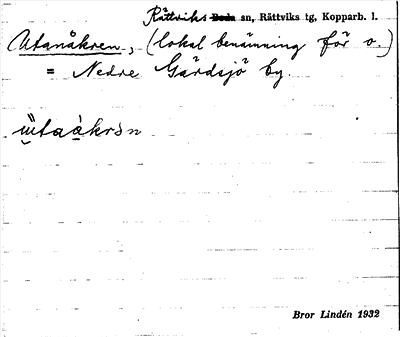 Rättviks sn, Rättviks tg, Kopparb. l.
Utanåkren, (lokal benämning för o.)
= Nedre Gärdsjö by.
Bror Lindén 1932